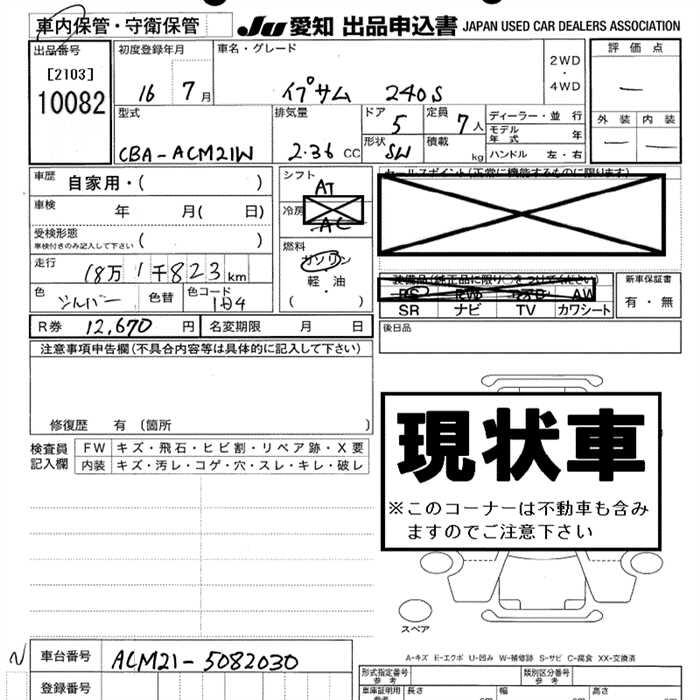 車内保管・守衛保管
JU 愛知 出品申込書 JAPAN USED CAR DEALERS ASSOCIATION
出品番号
[2103]
10082
初度登録年月
16 7月
車名・グレード
イプサム 240S
2WD
・
4WD
評価点
—
外装 内装
— —
型式
CBA-ACM21W
排気量
2.36 CC
ドア
5
定員
7人
形状
SW
積載
kg
ディーラー・並行
モデル年式 年
ハンドル 左・右
車歴 自家用・( )
車検 年 月( 日)
受検形態
車検付きのみ記入して下さい ( )
走行 18万1千823km
色 シルバー 色替 色コード
シフト
AT
冷房
AC
燃料
ガソリン
・
軽・油
( )
セールスポイント(正常に機能するものに限ります)
装備品(純正品に限り○をつけてください)
PS PW AW
SR ナビ TV カワシート
新車保証書
有・無
R券 12,670 円 名変期限 月 日
後日品
注意事項申告欄(不具合内容等は具体的に記入して下さい)
修復歴 有 (箇所 )
検査員
記入欄
FW キズ・飛石・ヒビ割・リペア跡・X要
内装 キズ・汚レ・コゲ・穴・スレ・キレ・破レ
現状車
※このコーナーは不動車も含み
ますのでご注意下さい
スペア
A-キズ E-エクボ U-凹み W-補修跡 S-サビ C-腐食 XX-交換済
N
車台番号 ACM21-5082030
登録番号
形式指定番号
参考
類別区分番号
参考
車庫証明用
参考
長さ 幅 高さ